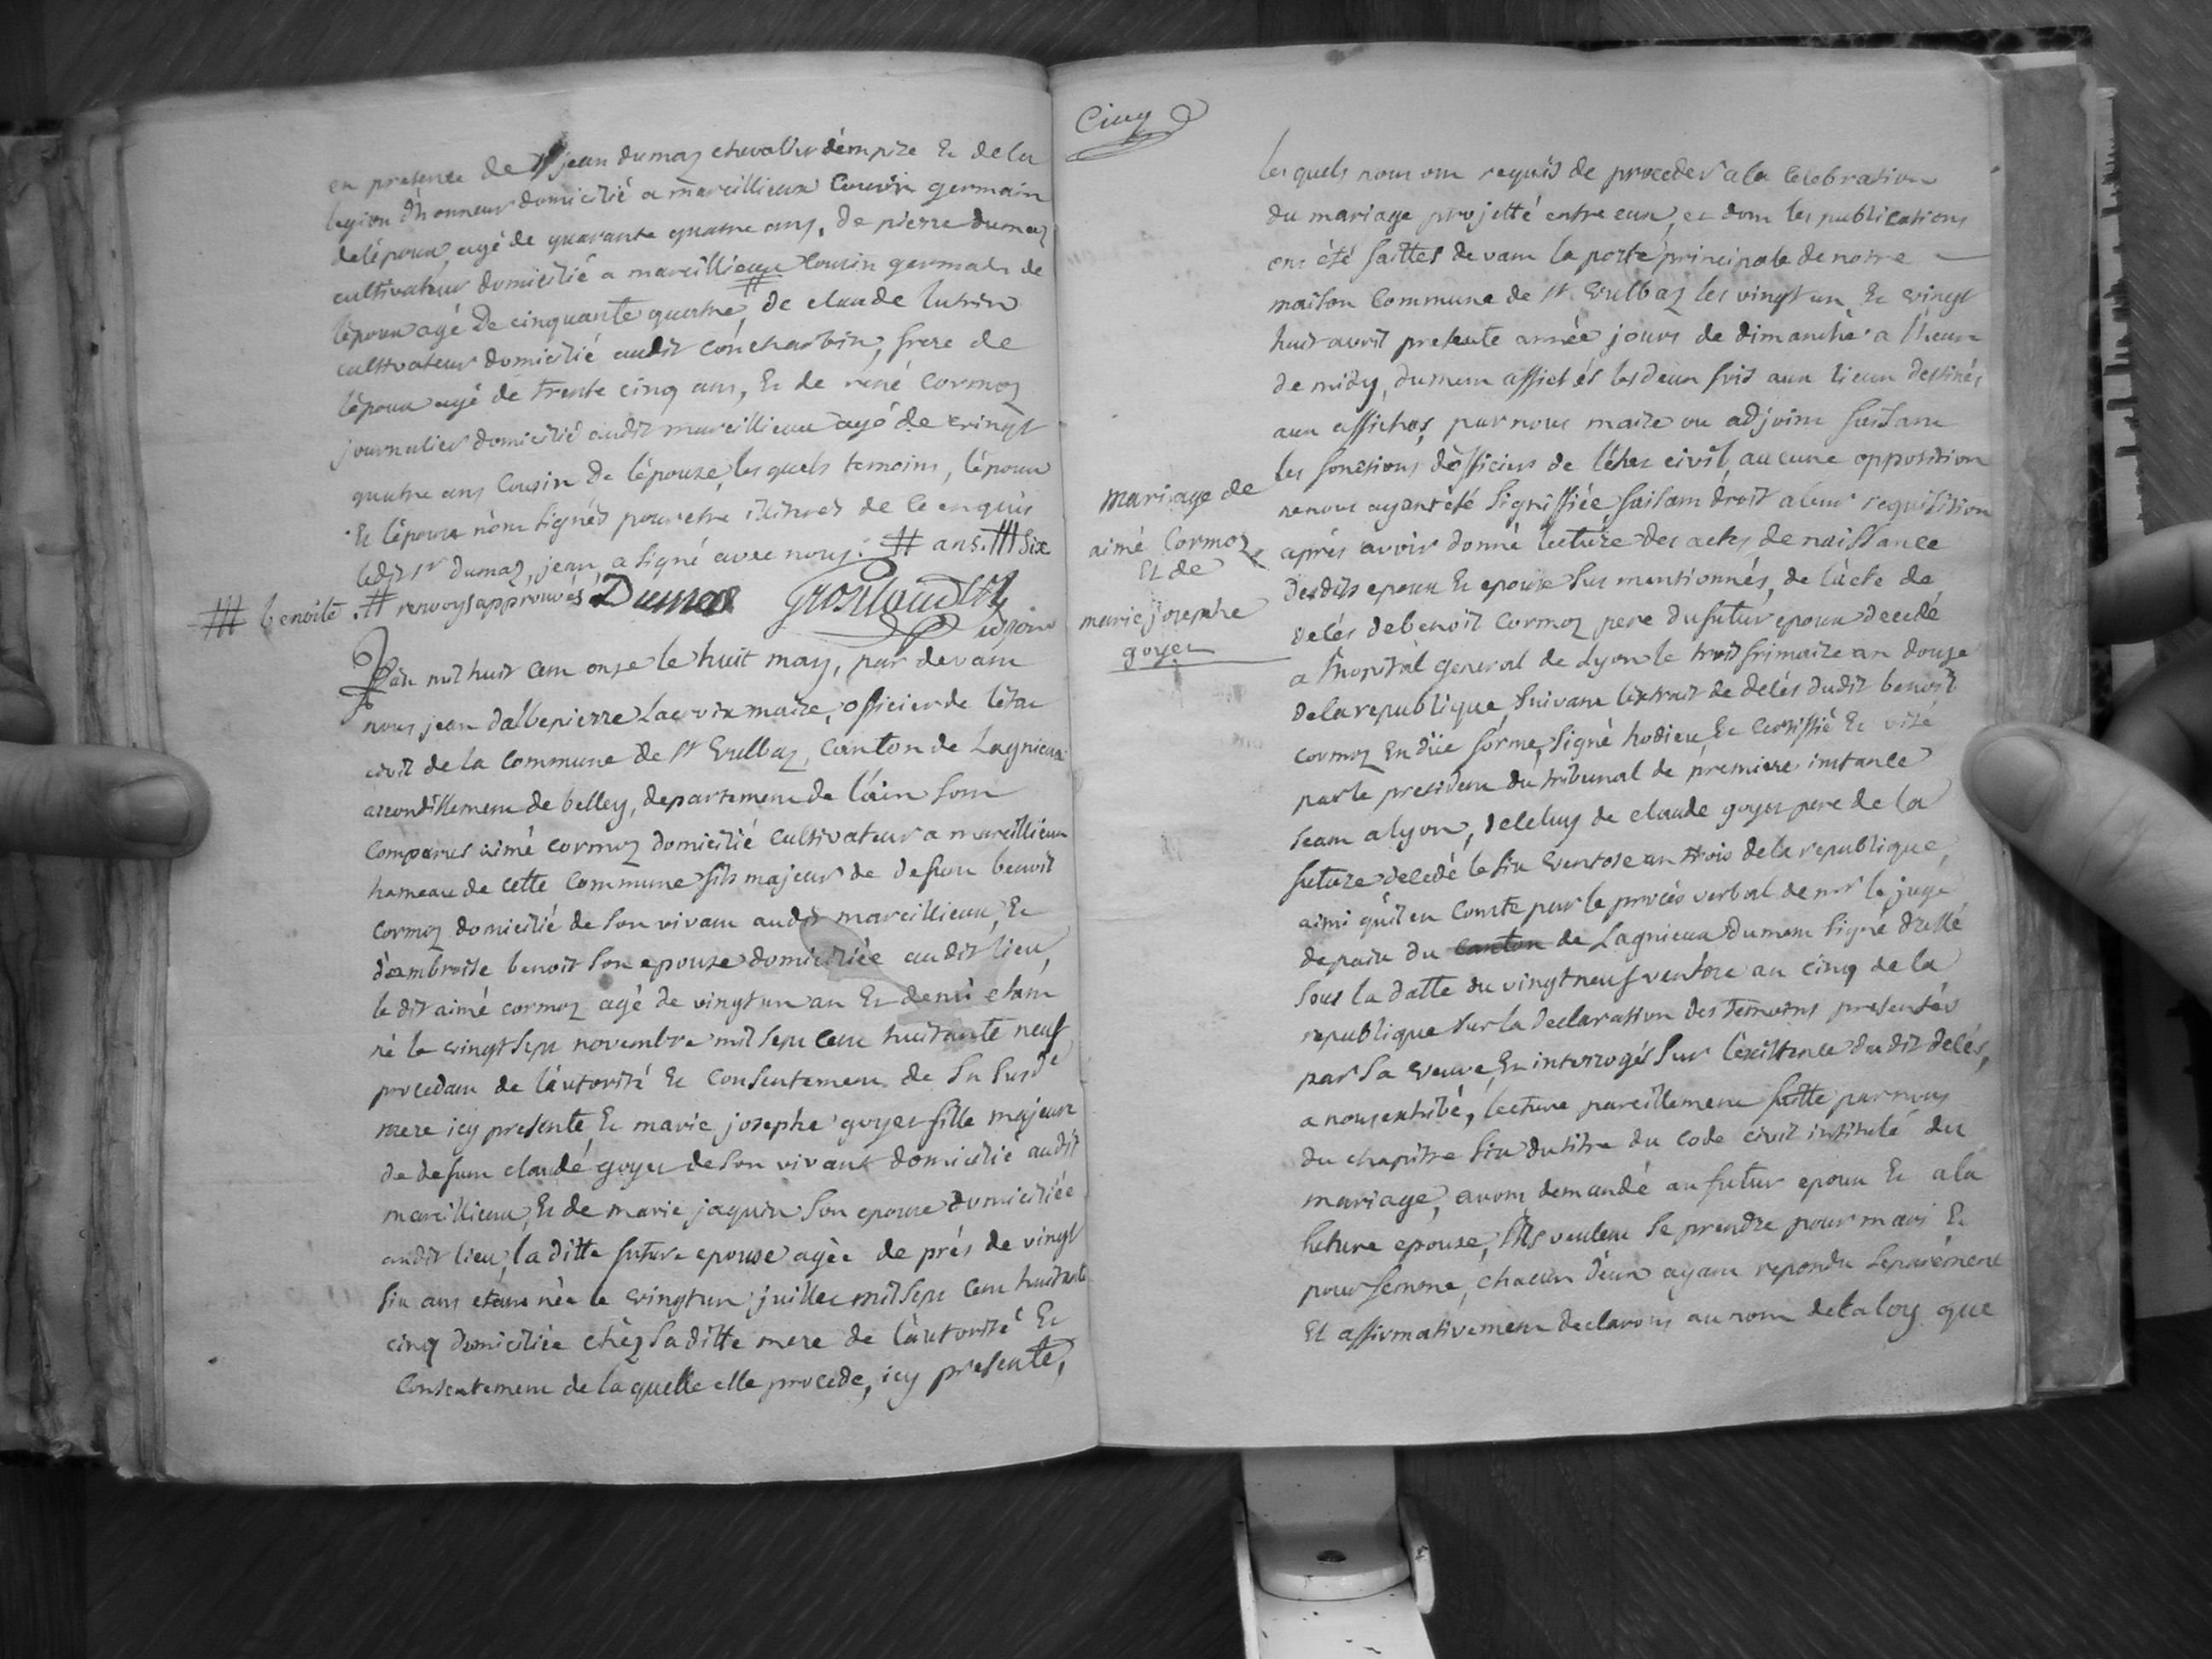 en presence de Sr jean dumas chevallier d'empire Et de la
legion d'honneur domicilié a marcillieux Cousin germain
de l'époux, agé de quarante quatre ans, de pierre dumas
cultivateur domicilié a marcillieux Cousin germain de
l'époux agé De cinquante quatre #, de claude lunin
cultivateur domicilié audit concharbin, frere de
l'époux agé de trente cinq ans, Et de réné Cormoz
journalier domicilié audit marcillieux agé de vingt
quatre ans Cousin De l'épouze, les quels temoins, l'époux
Et l'épouse n'ont signés pour etre illitrés de ce enquis
ledit sr dumas, jean, a signé avec nous. # ans. ### six
### benoite. # renvoys approuvés Dumas
adjoint
L'an mil huit cent onze le huit may, par devant
nous jean dalbepierre Lacroix maire, officier de l'état
civil de la Commune de St Vulbaz, Canton de Lagnieux
arrondissement de belley, departement de l'ain sont
Comparus aimé cormoz domicilié cultivateur a marcillieux
hameau de cette Commune fils majeur de defunt benoit
Cormoz domicilié de son vivant audit marcillieux, Et
d'ambroise benoit son epouze domiciliée audit lieu,
le dit aimé cormoz agé de vingt un an Et demi etant
né le vingt sept novembre mil sept cent huitante neuf
procedant de l'autorité Et Consentement de sa susde
mere icy presente, Et marie josephe goyet fille majeure
de defunt claude goyet de son vivant domicilié audit
marcillieux, Et de marie jaquin son epouse domiciliée
audit lieu, la ditte future epouse agée de prés de vingt
six ans etant née le vingt un juillet mil sept cent huitante
cinq domiciliée chéz sa ditte mere de l'autorité Et
Consentement de la quelle elle procede, icy presente,
Cinq
Mariage de
aimé Cormoz
Et de
marie josephe
goyet
les quels nous ont requis de proceder a la Celebration
du mariage projetté entre eux, et dont les publications
ont été faittes devant la porte principale de notre
maison Commune de St Vulbaz les vingt un Et vingt
huit avril presente année jours de dimanche a l'heure
de midy, dument affichés les deux fois aux lieux destinés
aux affiches, par nous maire ou adjoint faisant
les fonctions d'officier de l'état civil, aucune opposition
ne nous ayant été signiffiée, faisant droit a leur requisition
aprés avoir donné lecture des actes de naissance
desdits epoux Et epouse sus mentionnés, de l'acte de
delés de benoit Cormoz pere du futur epoux decedé
a l'hopital general de Lyon le huit frimaire an douze
de la republique suivant l'extrait de delés dudit benoit
cormoz En düe forme, signé hodieu, Et Certiffié Et visé
par le president du tribunal de premiere instance
seant a lyon, de celuy de claude goyet pere de la
future decedé le six ventose an trois de la republique,
ainsi qu'il en Conste par le procés verbal de mr le juge
de paix du canton de Lagnieux dument signé dressé
sous la datte du vingt neuf ventose an cinq de la
republique sur la declaration des temoins presentés
par sa veuve, Et interrogés sur l'existence dudit delés,
a nous exhibé, lecture pareillement faitte par nous
du chapitre six du titre du code civil intitulé du
mariage, avons demandé au futur epoux Et a la
future epouse, s'ils veulent se prendre pour mari Et
pour femme, chacun d'eux ayant repondu separément
Et affirmativement declarons au nom de la loy que